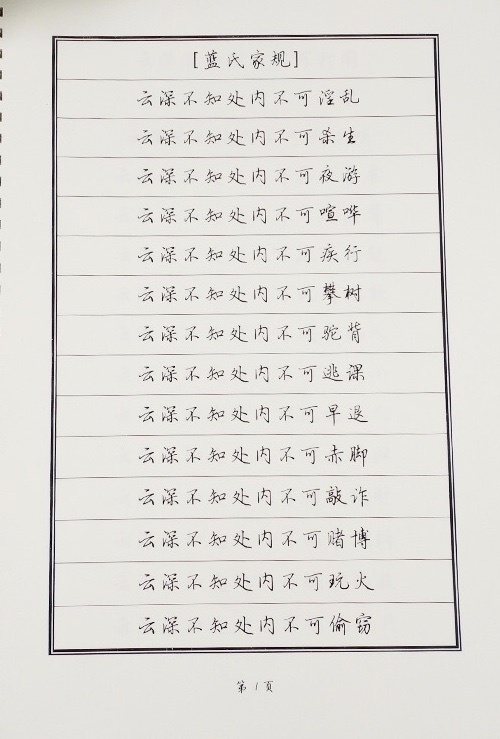 [蓝氏家规]
云深不知处内不可淫乱
云深不知处内不可杀生
云深不知处内不可夜游
云深不知处内不可喧哗
云深不知处内不可疾行
云深不知处内不可攀树
云深不知处内不可驼背
云深不知处内不可逃课
云深不知处内不可早退
云深不知处内不可赤脚
云深不知处内不可敲诈
云深不知处内不可赌博
云深不知处内不可玩火
云深不知处内不可偷窃
第1页